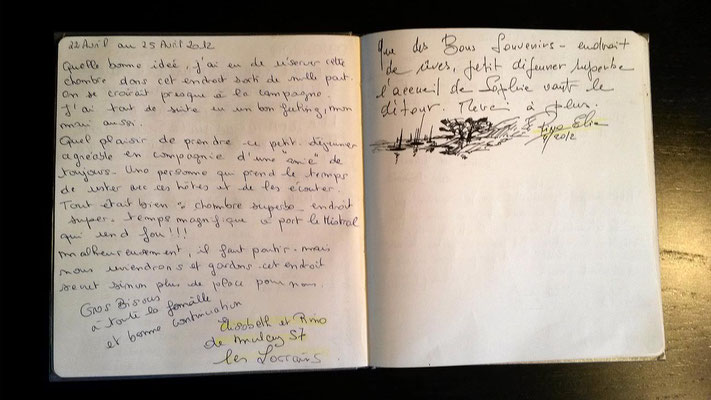 22 Avril au 25 Avril 2012
Quelle bonne idée, j'ai eu de réserver cette
chambre dans cet endroit sorti de nulle part.
on se croirait presque à la campagne.
J'ai tout de suite eu un bon feeling, mon
mari aussi.
Quel plaisir de prendre ce petit déjeuner
agréable en compagnie d'une "amie" de
toujours. Une personne qui prend le temps
de rester avec ses hôtes et de les écouter.
Tout était bien : chambre superbe - endroit
super - temps magnifique à part le Mistral
qui rend fou!!!
malheureusement, il faut partir - mais
nous reviendrons et gardons cet endroit
secret sinon plus de place pour nous.
Gros Bisous
à toute la famille
et bonne continuation
Elisabeth et Pino
de 57
les Lorrains.
Que des Bons Souvenirs - endroit
de rêves, petit déjeuner superbe
l'accueil de Sophie vaut le
détour. Merci à plus.
Pino Elia
2012